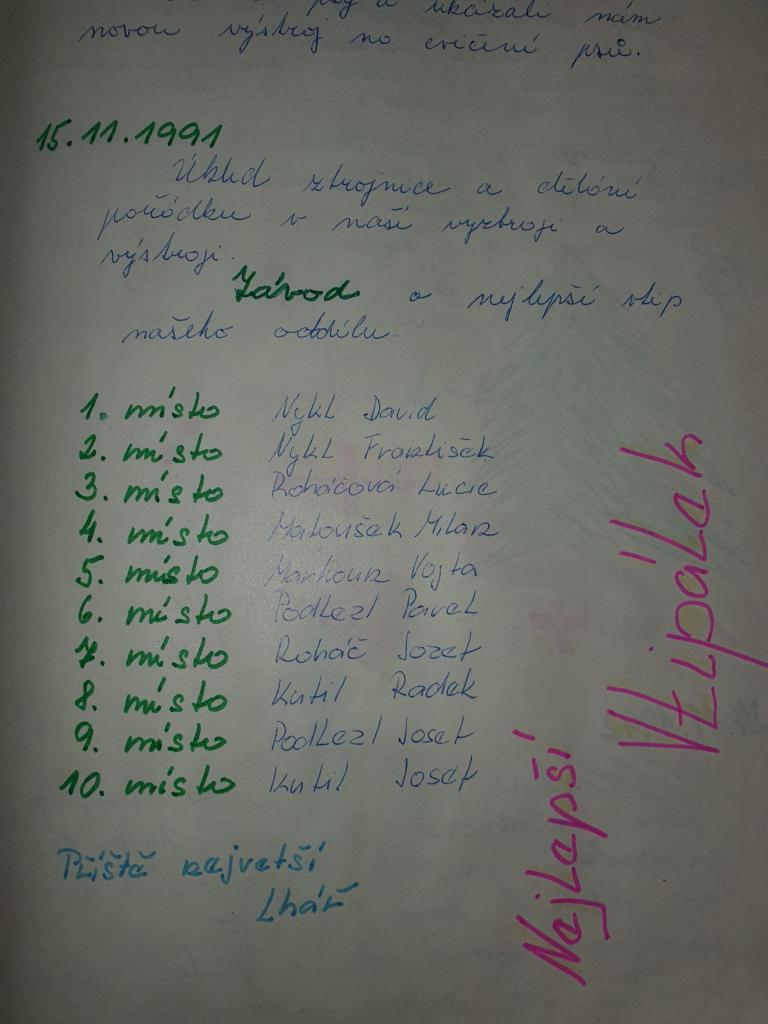 a ukázali nám
novou výstroj na cvičení psů.
15.11.1991
Úklid zbrojnice a dělání
pořádku v naší vyzbroji a
výstroji.
Závod o nejlepší vtip
našeho oddílu.
1. místo Nykl David
2. místo Nykl František
3. místo Roháčová Lucie
4. místo Matoušek Milan
5. místo Markoun Vojta
6. místo Podlezl Pavel
7. místo Roháč Jozef
8. místo Kutil Radek
9. místo Podlezl Josef
10. místo Kutil Josef
Nejlepší Vtipálek
Příště největší
Lhář